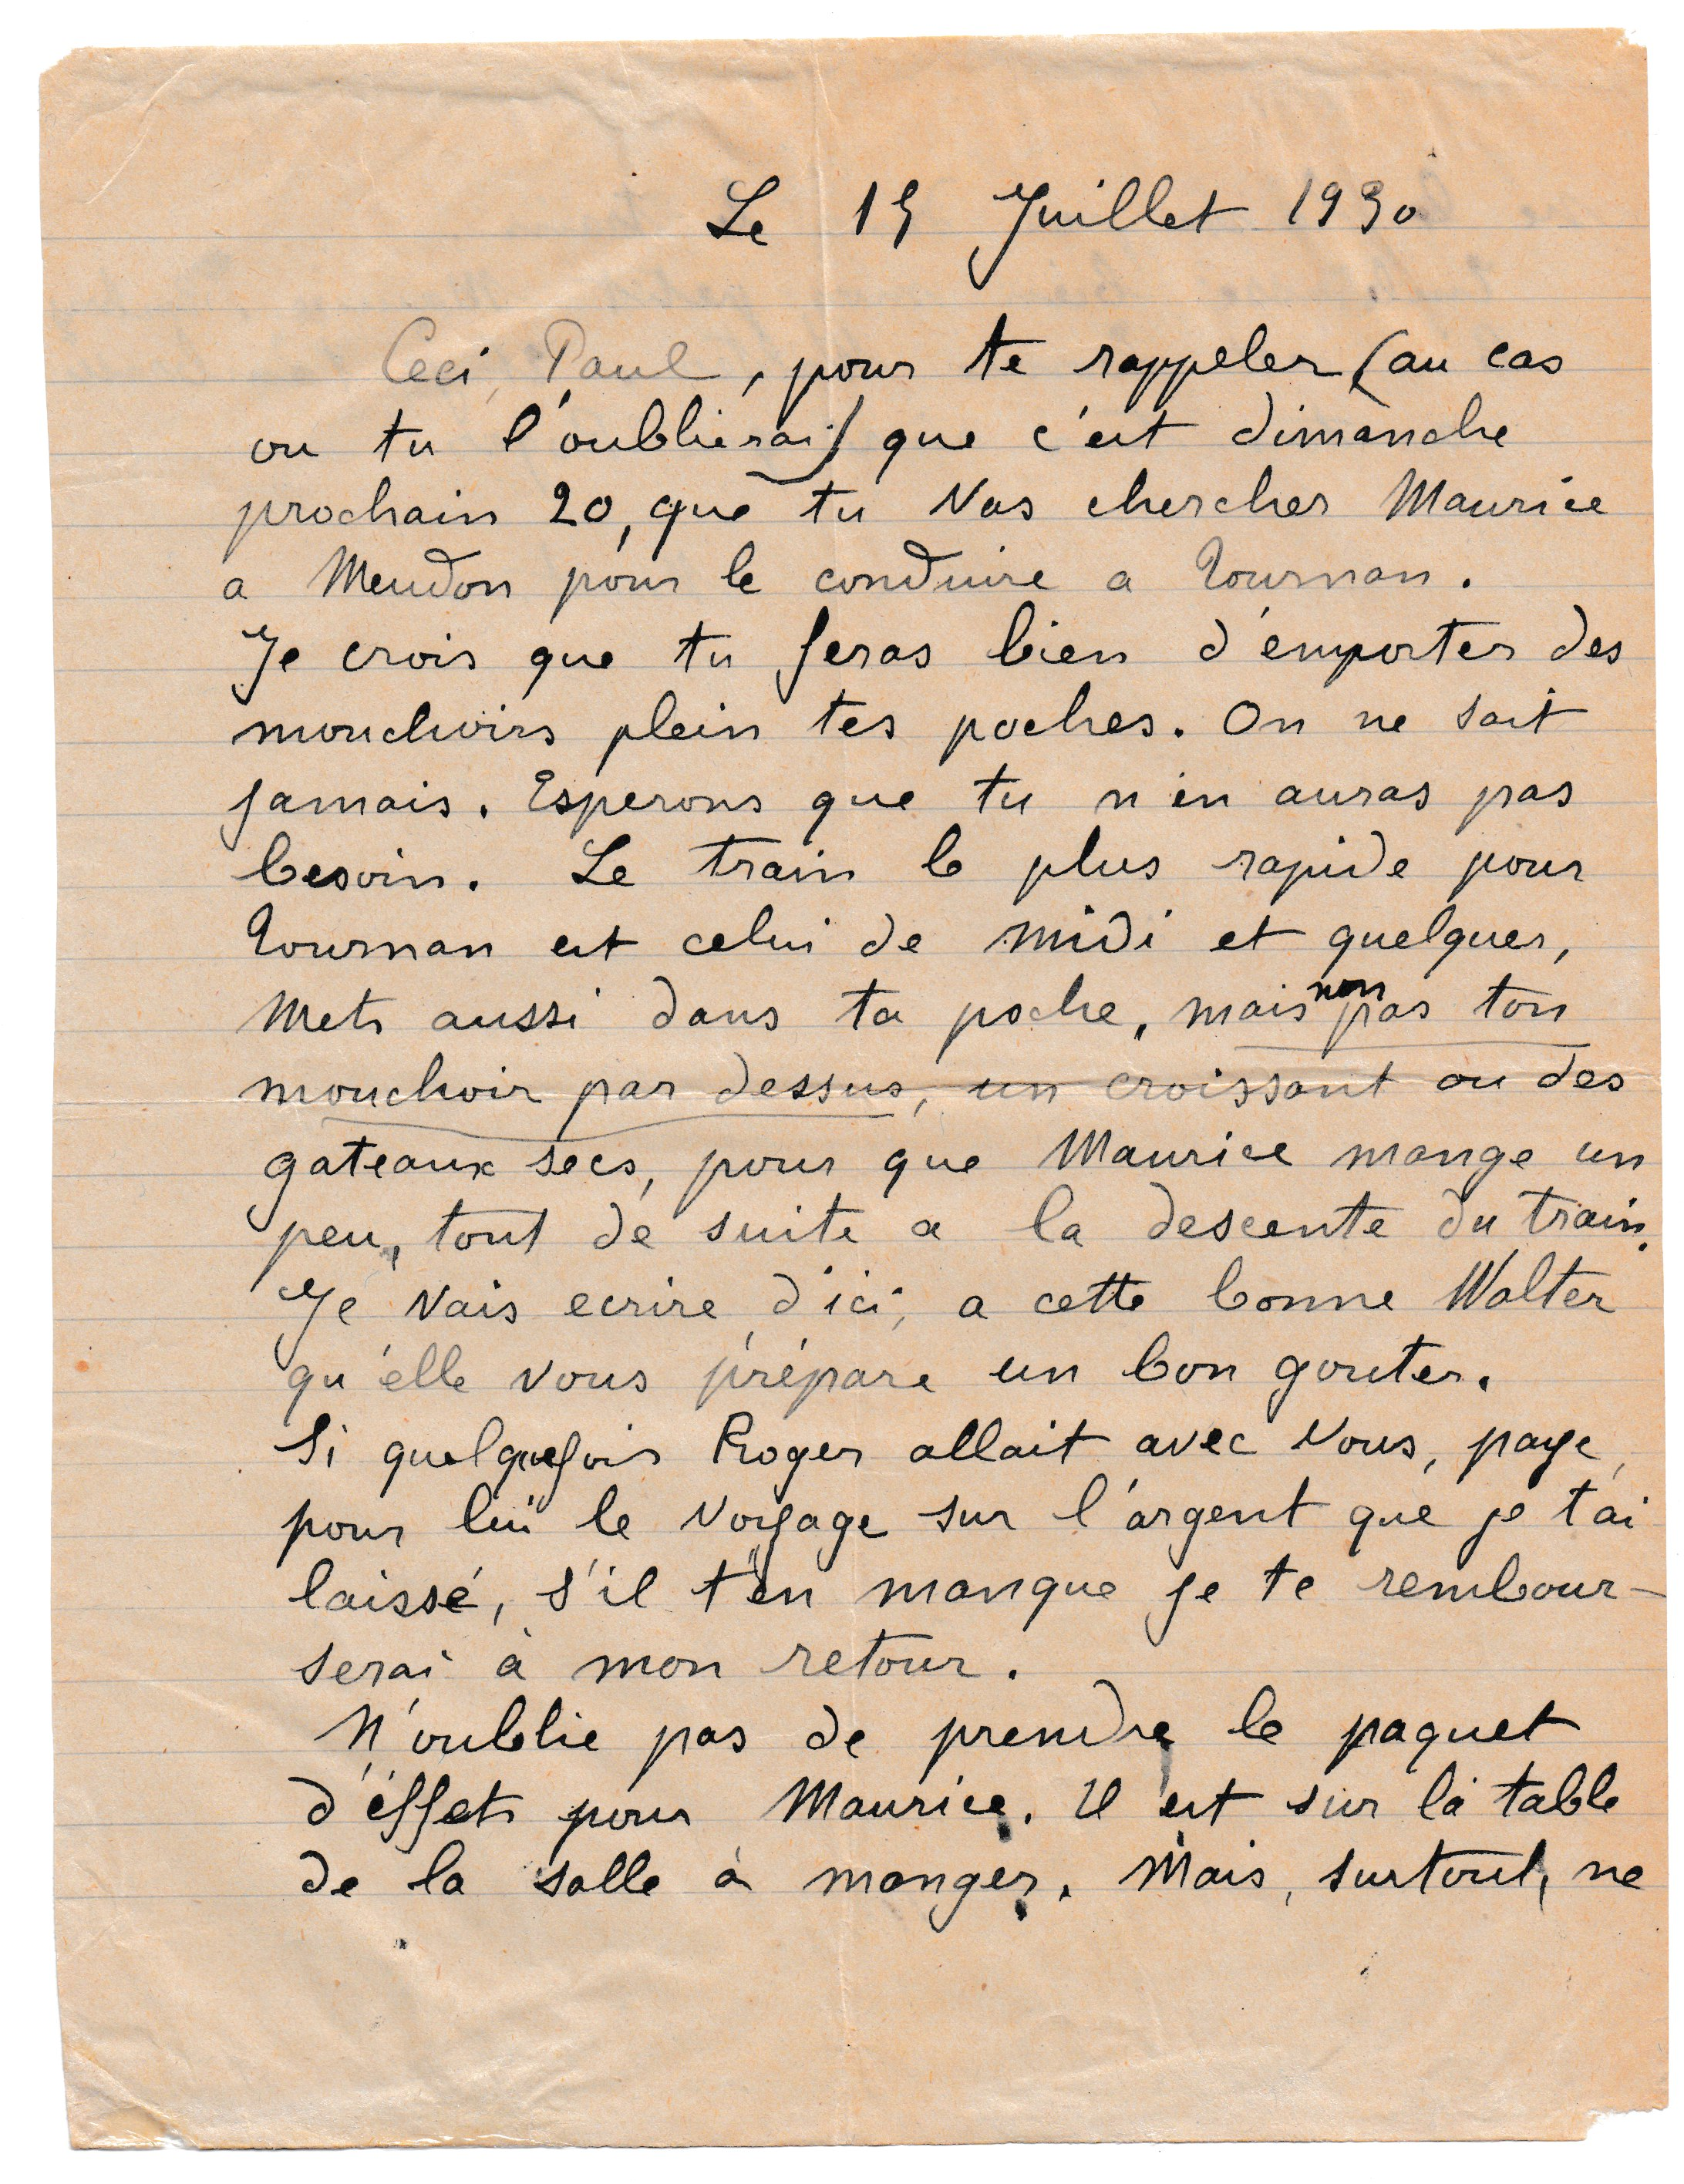 Le 15 Juillet 1930
Ceci, Paul, pour te rappeler (au cas
ou tu l'oublierais) que c'est dimanche
prochain 20, que tu vas chercher Maurice
a Meudon pour le conduire a Tournan.
Je crois que tu feras bien d'emporter des
mouchoirs plein tes poches. On ne sait
jamais. Esperons que tu n'en auras pas
besoin. Le train le plus rapide pour
Tournan est celui de midi et quelques,
Mets aussi dans ta poche, mais non pas ton
mouchoir par dessus, un croissant ou des
gateaux secs, pour que Maurice mange un
peu, tout de suite a la descente du train.
Je vais ecrire, d'ici, a cette bonne Walter
qu'elle vous prépare un bon gouter.
Si quelquefois Roger allait avec vous, paye,
pour lui le voyage sur l'argent que je t'ai
laissé, s'il t'en manque je te rembour-
serai à mon retour.
N'oublie pas de prendre le paquet
d'éffets pour Maurice. Il est sur la table
de la salle à manger. Mais, surtout, ne